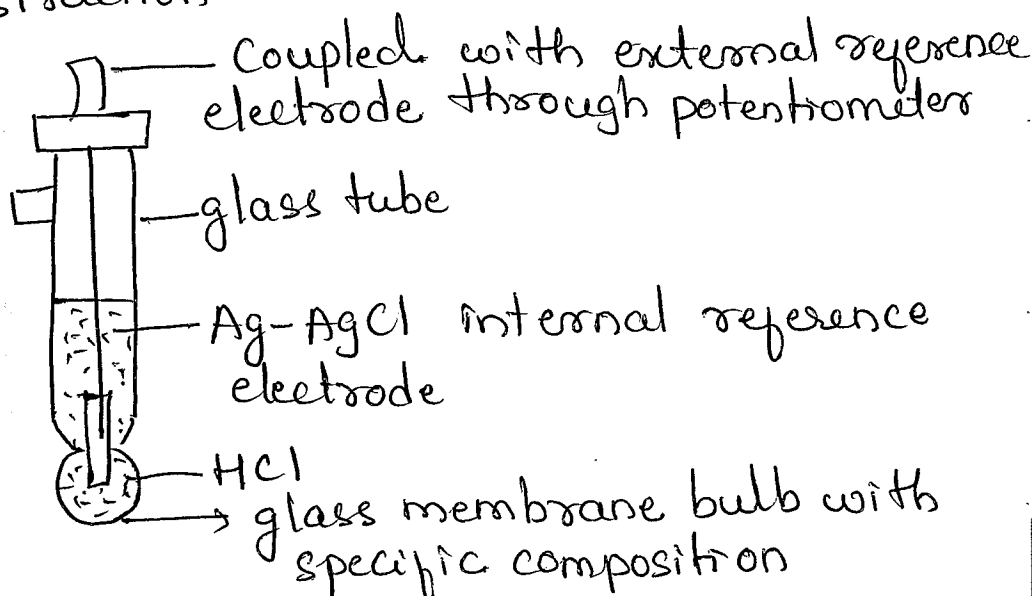 Coupled with external reference
electrode through potentiometer
glass tube
Ag-AgCl internal reference
electrode
HCl
glass membrane bulb with
specific composition